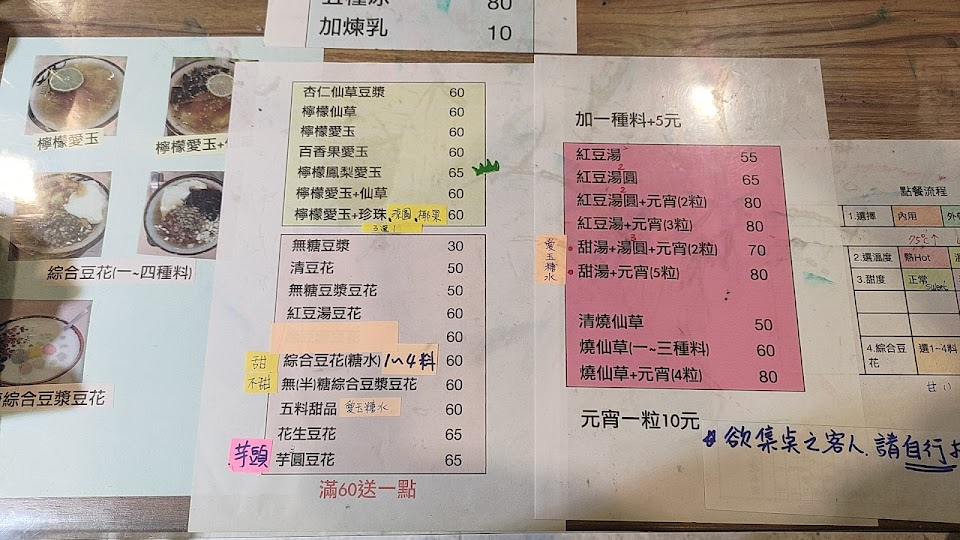 80
加煉乳 10
檸檬愛玉
綜合豆花(一~四種料)
綜合豆漿豆花
杏仁仙草豆漿 60
檸檬仙草 60
檸檬愛玉 60
百香果愛玉 60
檸檬鳳梨愛玉 65
檸檬愛玉+仙草 60
檸檬愛玉+珍珠, 湯圓, 椰果 60
3選1
無糖豆漿 30
清豆花 50
無糖豆漿豆花 50
紅豆湯豆花 60
甜
綜合豆花(糖水) 1~4料 60
不甜
無(半)糖綜合豆漿豆花 60
五料甜品 愛玉糖水 60
花生豆花 65
芋頭
芋圓豆花 65
滿60送一點
加一種料+5元
紅豆湯 55
紅豆湯圓 65
紅豆湯圓+元宵(2粒) 80
紅豆湯+元宵(3粒) 80
愛玉糖水
甜湯+湯圓+元宵(2粒) 70
甜湯+元宵(5粒) 80
清燒仙草 50
燒仙草(一~三種料) 60
燒仙草+元宵(4粒) 80
元宵一粒10元
點餐流程
1.選擇 內用
75°C↑
2.選溫度 熱Hot
3.甜度 正常
Sweet
4.綜合豆花 選1~4料
#欲集桌之客人,請自行